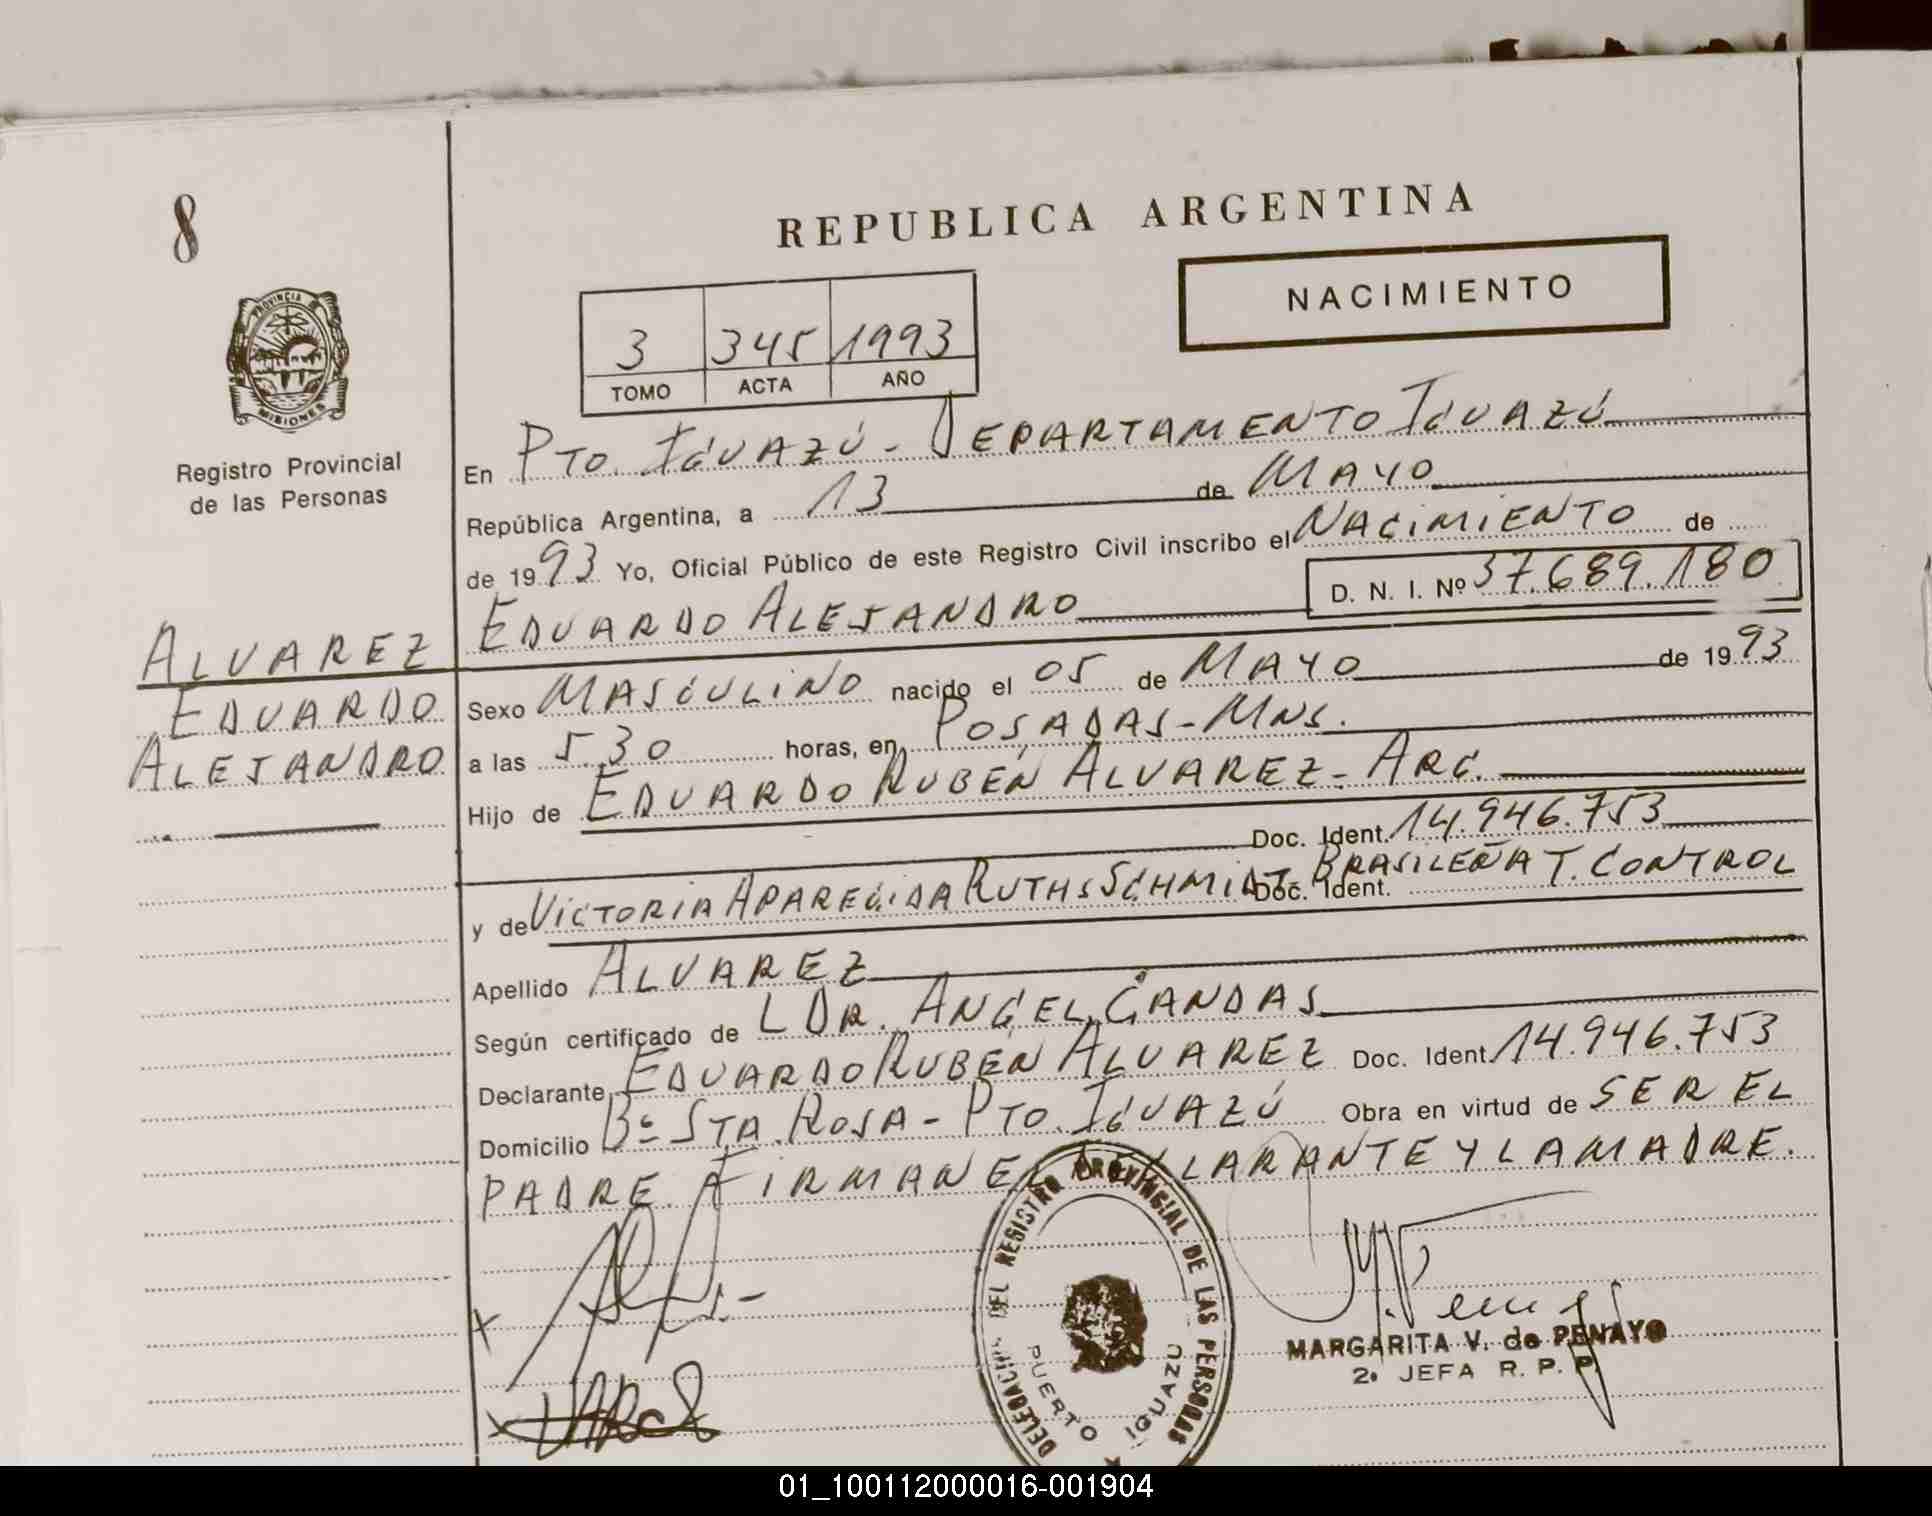 8
REPUBLICA ARGENTINA
NACIMIENTO
3 345 1993
TOMO ACTA AÑO
PROVINCIA DE
MISIONES
Registro Provincial
de las Personas
En PTO. IGUAZÚ - DEPARTAMENTO IGUAZÚ
República Argentina, a 13 de MAYO
de 1993 Yo, Oficial Público de este Registro Civil inscribo el NACIMIENTO de
D. N. I. Nº 37.689.180
EDUARDO ALEJANDRO
ALVAREZ
EDUARDO
ALEJANDRO
Sexo MASCULINO nacido el 05 de MAYO de 1993
a las 5.30 horas, en POSADAS - MNS.
Hijo de EDUARDO RUBÉN ALVAREZ - ARG.
Doc. Ident. 14.946.753
y de VICTORIA APARECIDA RUTHS SCHMIDT BRASILEÑA T. CONTROL
Doc. Ident.
Apellido ALVAREZ
Según certificado de L DR. ANGEL GANDAS
Declarante EDUARDO RUBÉN ALVAREZ Doc. Ident. 14.946.753
Domicilio Bº STA. ROSA - PTO. IGUAZÚ Obra en virtud de SER EL
PADRE. FIRMAN EL DECLARANTE Y LA MADRE.
DELEGACION DEL REGISTRO PROVINCIAL DE LAS PERSONAS
PUERTO IGUAZU
MARGARITA V. de PENAYO
2º JEFA R. P. P.
01_100112000016-001904